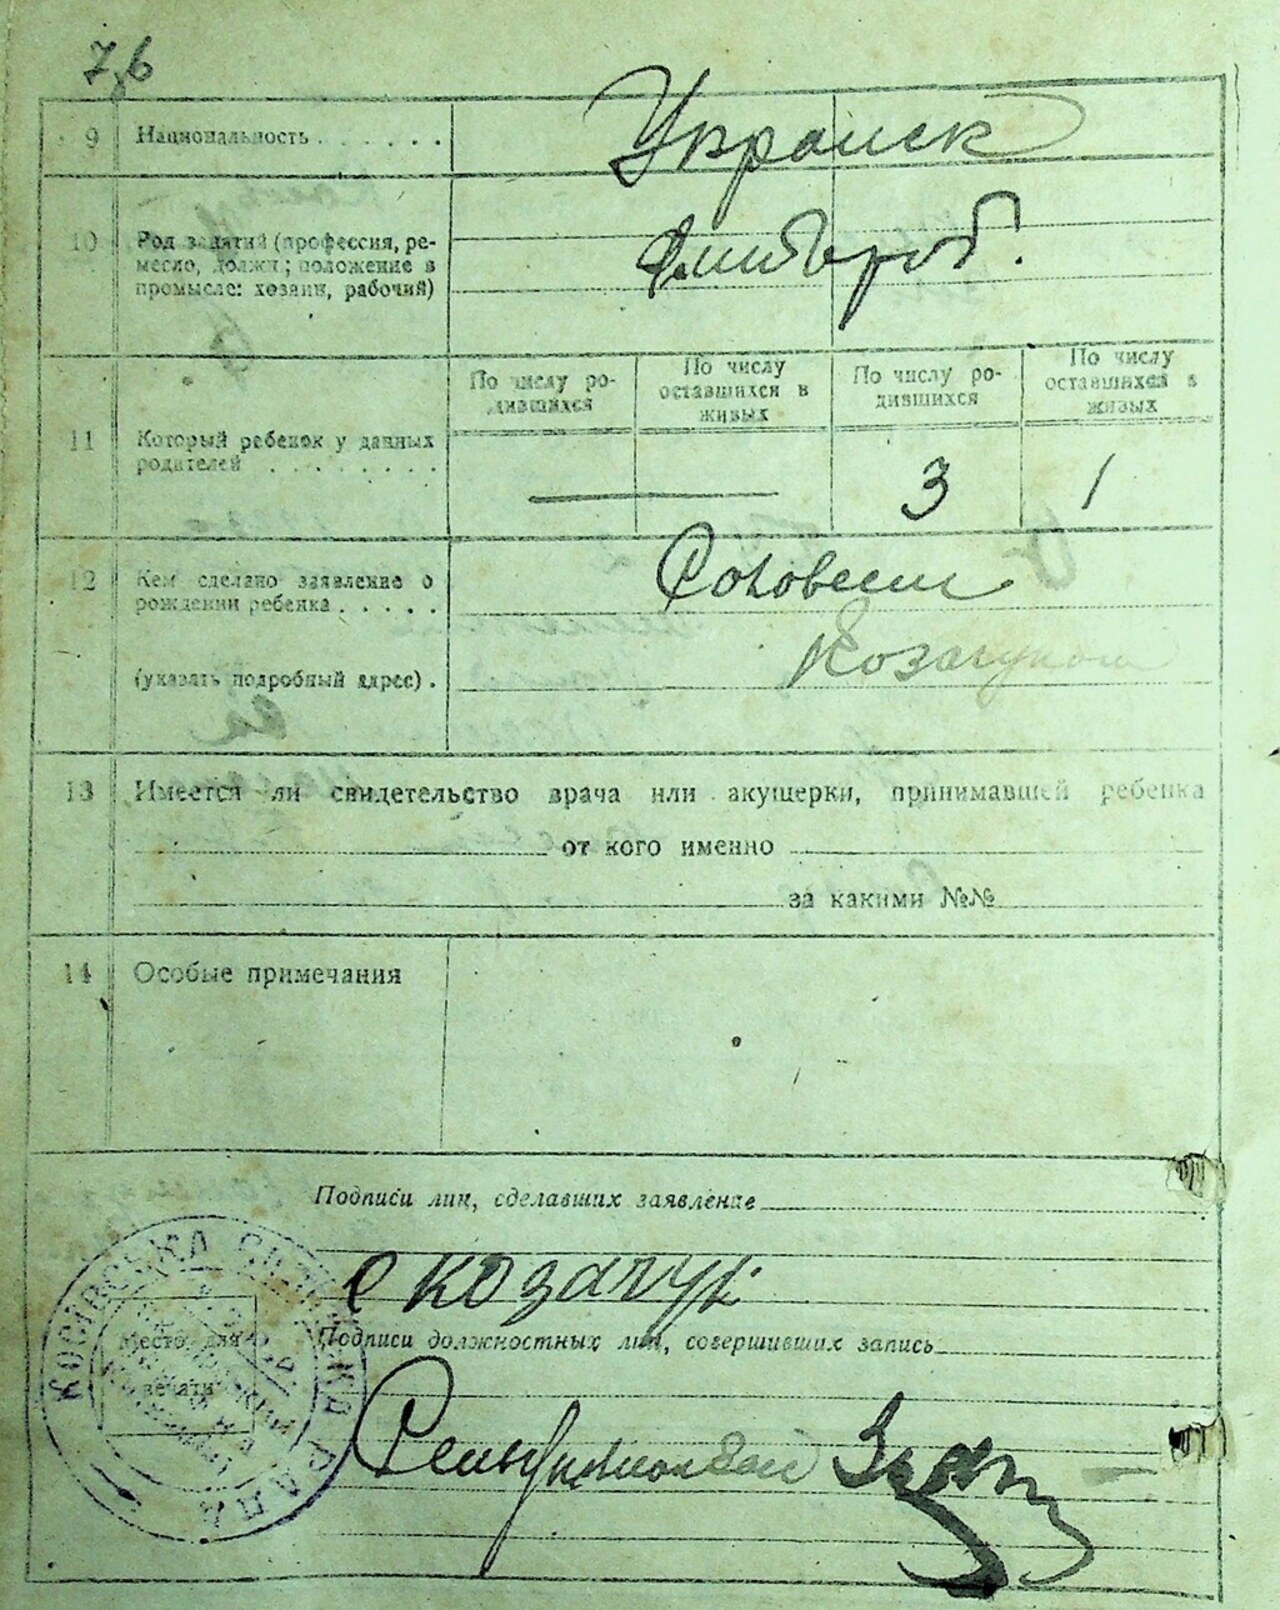 76
9 Национальность . . . . . . Украинск
10 Род занятий (профессия, ре-
месло, должн; положение в
промысле: хозяин, рабочий)
По числу ро-
дившихся
По числу
оставшихся в
живых
По числу ро-
дившихся
По числу
оставшихся в
живых
11 Который ребенок у данных
родителей . . . . . . . . 3 1
12 Кем сделано заявление о
рождении ребенка . . . . .
(указать подробный адрес) . Козачуком
13 Имеется ли свидетельство врача или акушерки, принимавшей ребенка
от кого именно
за какими №№
14 Особые примечания
Подписи лиц, сделавших заявление
Козачук
Подписи должностных лиц, совершивших запись
Место для
печати